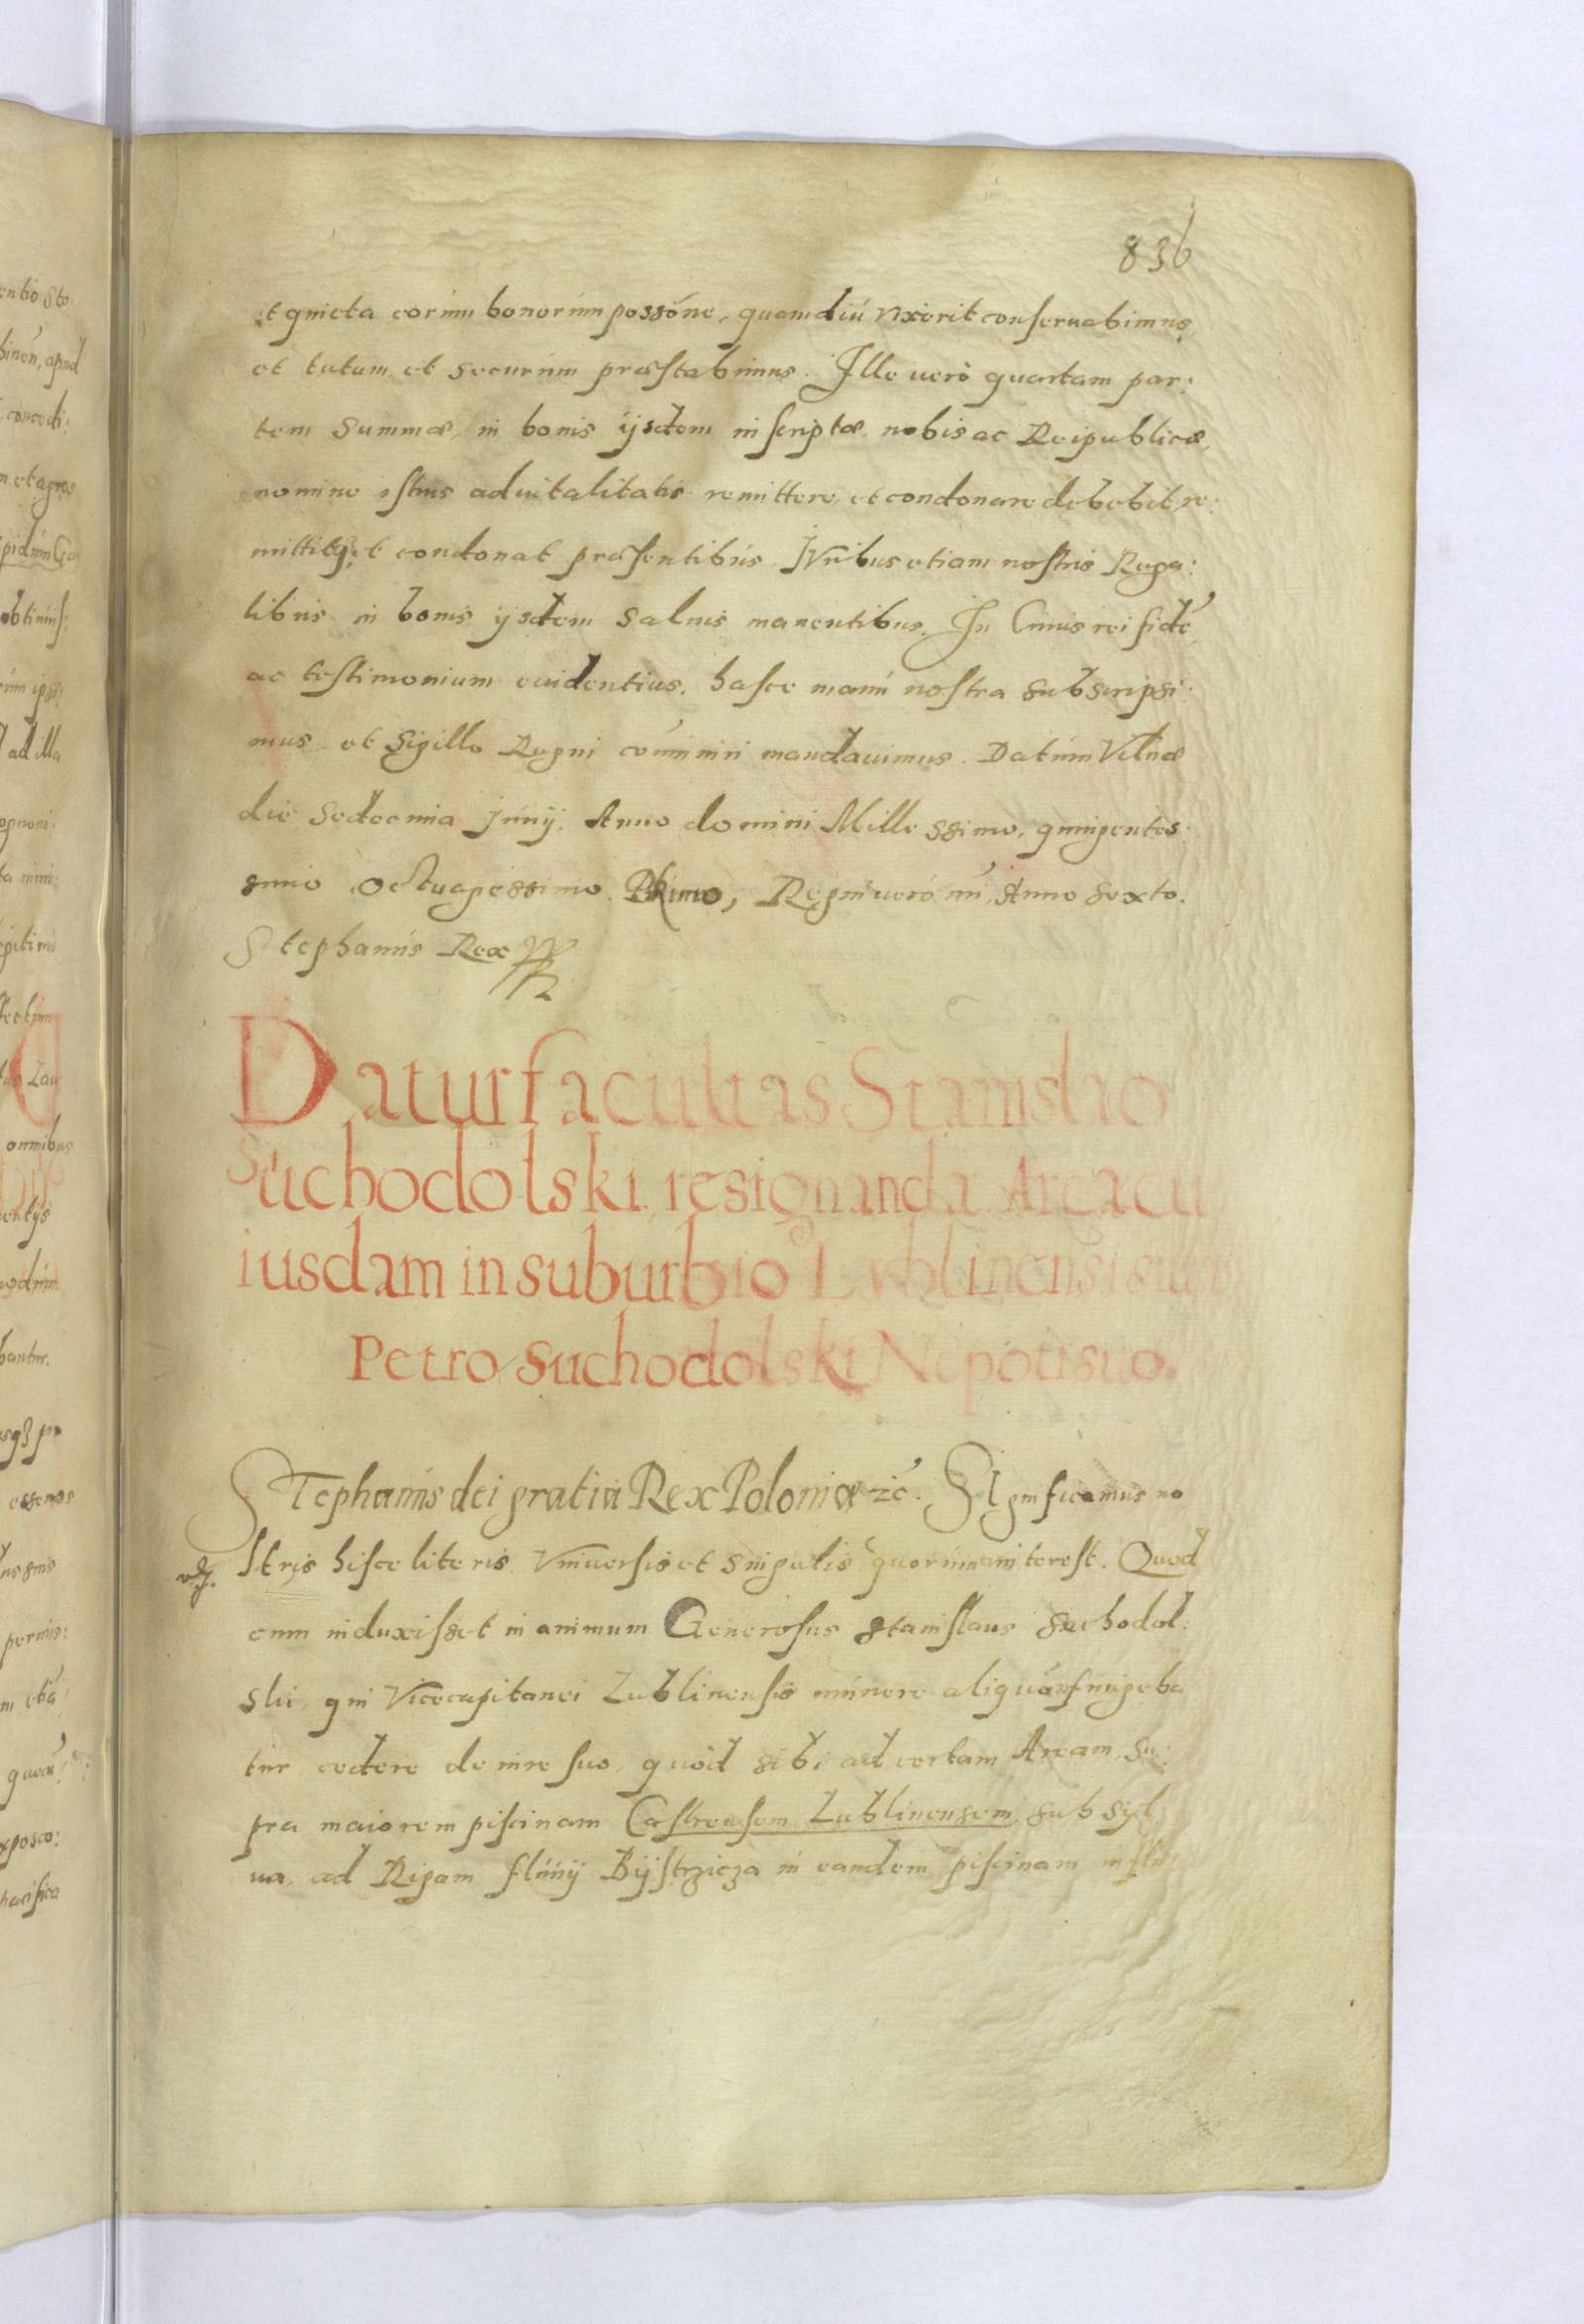 836
et quieta eorum bonorum possõne, quamdiu vixerit conseruabimus,
et tutum et securum præstabimus. Ille uerò quartam par:
tem summæ, in bonis ijsdem inscriptæ nobis ac Reipublicæ,
nomine istius aduitalitatis remittere, et condonare debebit, re:
mittitq; et condonat præsentibus. Iuribus etiam nostris Rega:
libus in bonis ijsdem saluis manentibus. In Cuius rei fidẽ,
ac testimonium euidentius, hasce manu nostra subscripsi:
mus et Sigillo Regni cõmuniri mandauimus. Datum Vilnæ
die sedecima Junij. Anno domini Millessimo, quingentes:
simo octuagessimo Primo, Regni uero nri Anno sexto.
Stephanus Rex
Datur facultas Stanislao
Suchodolski resignanda Areæ cu
iusdam in suburbio Lublinensi sitæ
Petro Suchodolski Nepoti suo.
Stephanus dei gratia Rex Poloniæ zc. Significamus no
stris hisce literis Vniuersis et singulis quorum interest. Quod
cum induxisset in animum Generosus Stanislaus Suchodol:
ski, qui Vicecapitanei Lublinensis munere aliquãn fungeba
tur cedere de iure suo, quod sibi ad certam Aream su:
pra maiorem piscinam Castrensem Lublinensem sub syl
ua, ad Ripam fluuij Bijstrzicza in eandem piscinam influ: